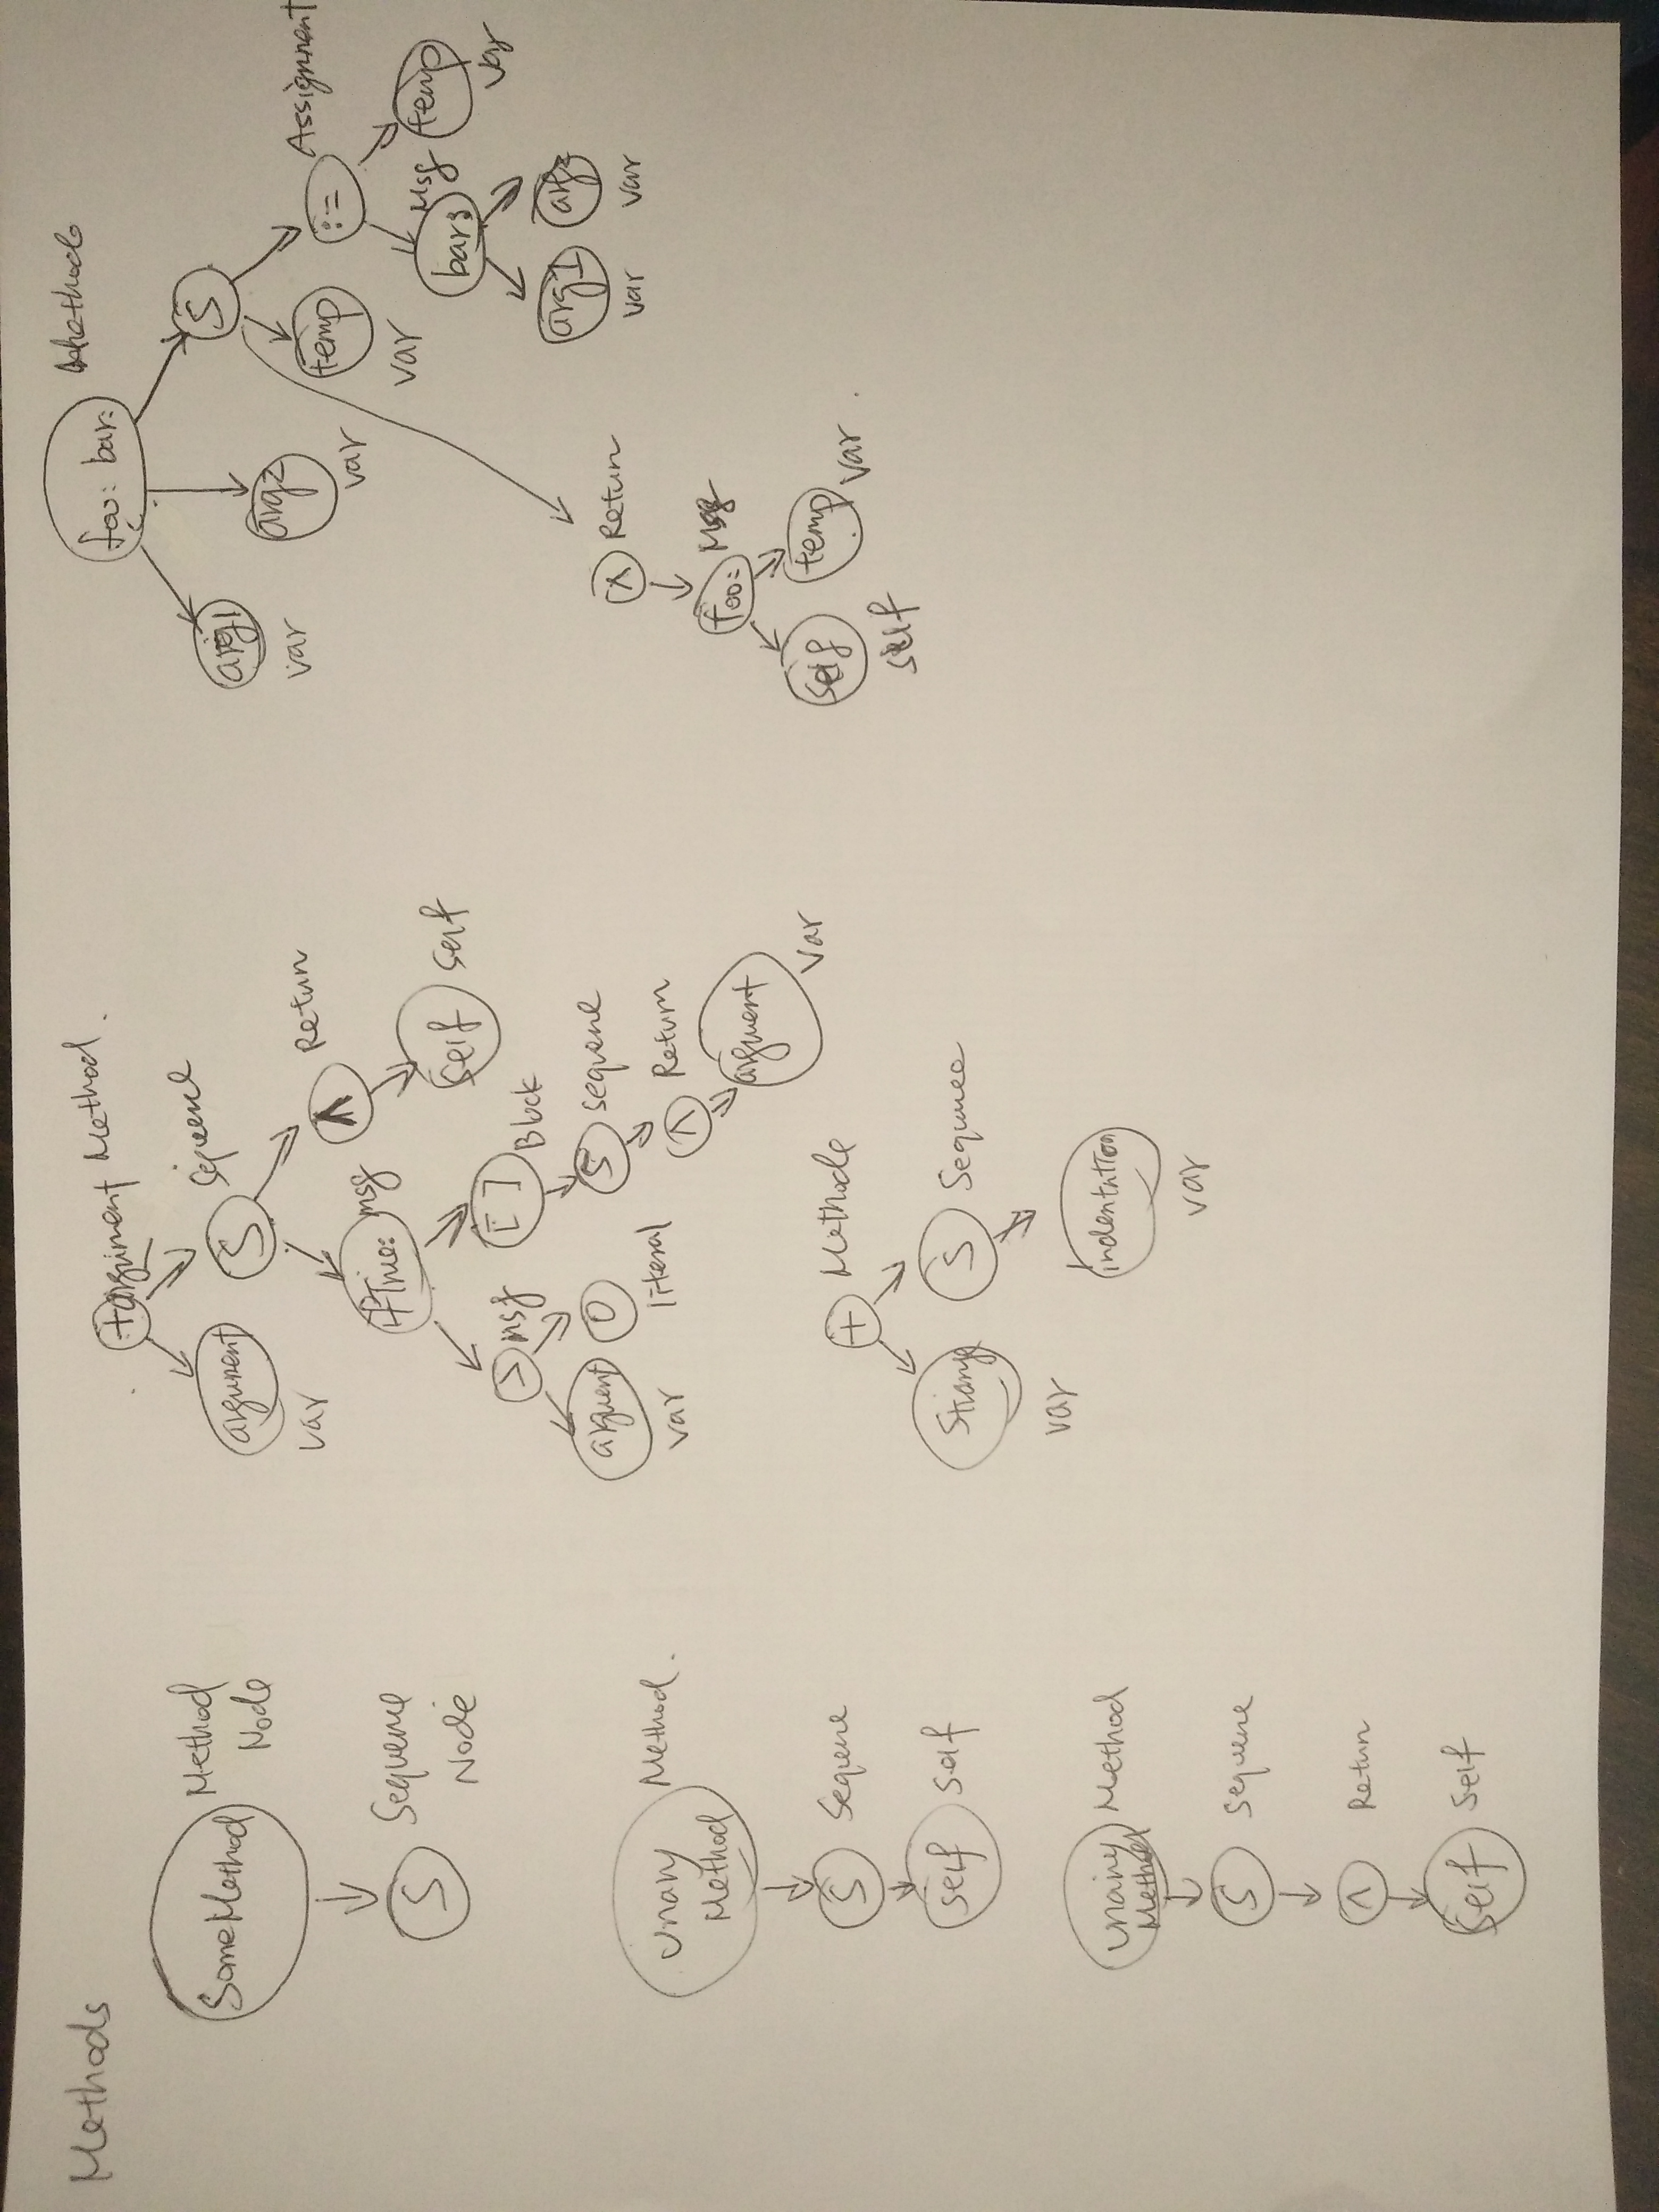 Methods
SomeMethod
Method
Node
S
Sequene
Node
Unary
Method
Method.
S
Sequene
self
Self
Unary
Method
Method
S
Sequene
^
Return
self
Self
+
Method.
argument
var
S
^
Return
self
self
ifTrue:
msg
>
msg
argument
var
0
literal
[ ]
Block
S
sequene
^
Return
argument
var
+
Methode
var
S
Sequnee
indentation
var
foo: bar:
arg1
var
arg2
var
S
temp
var
:=
Assignment
Msg
arg1
var
arg2
var
temp
var
Return
foo:
Msg
self
self
temp
var.